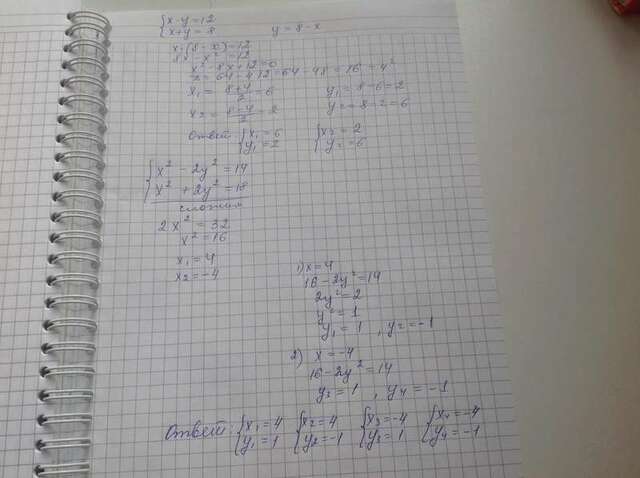 {x·y=12
x+y=8 y=8-x
x·(8-x)=12
8x-x²=12
x²-8x+12=0
D=64-4·12=64-48=16=4²
x₁=(8+4)/2=6 y₁=8-6=2
x₂=(8-4)/2=2 y₂=8-2=6
Ответ: {x₁=6 {x₂=2
y₁=2 y₂=6
{x²-2y²=14
x²+2y²=18
сложим
2x²=32
x²=16
x₁=4
x₂=-4
1) x=4
16-2y²=14
2y²=2
y²=1
y₁=1, y₂=-1
2) x=-4
16-2y²=14
y₃=1, y₄=-1
Ответ: {x₁=4 {x₂=4 {x₃=-4 {x₄=-4
y₁=1 y₂=-1 y₃=1 y₄=-1